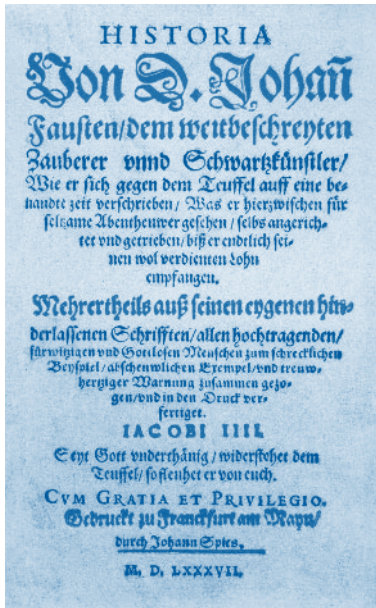 HISTORIA
Von D. Johañ
Fausten/dem weitbeschreyten
Zauberer vnnd Schwartzkünstler/
Wie er sich gegen dem Teuffel auff eine be-
nandte zeit verschrieben/ Was er hierzwischen für
seltzame Abenthewer gesehen/ selbs angerich-
tet vnd getrieben/ biß er endtlich sei-
nen wol verdienten Lohn
empfangen.
Mehrertheils auß seinen eygenen hin-
derlassenen Schrifften/allen hochtragenden/
fürwitzigen vnd Gottlosen Menschen zum schrecklichen
Beyspiel/ abscheuwlichen Exempel/vnd treuw-
hertziger Warnung zusammen gezo-
gen/vnd in den Druck ver-
fertiget.
IACOBI IIII.
Seyt Gott vnderthänig/ widerstehet dem
Teuffel/ so fleuhet er von euch.
CVM GRATIA ET PRIVILEGIO.
Gedruckt zu Franckfurt am Mayn/
durch Johann Spies.
M. D. LXXXVII.